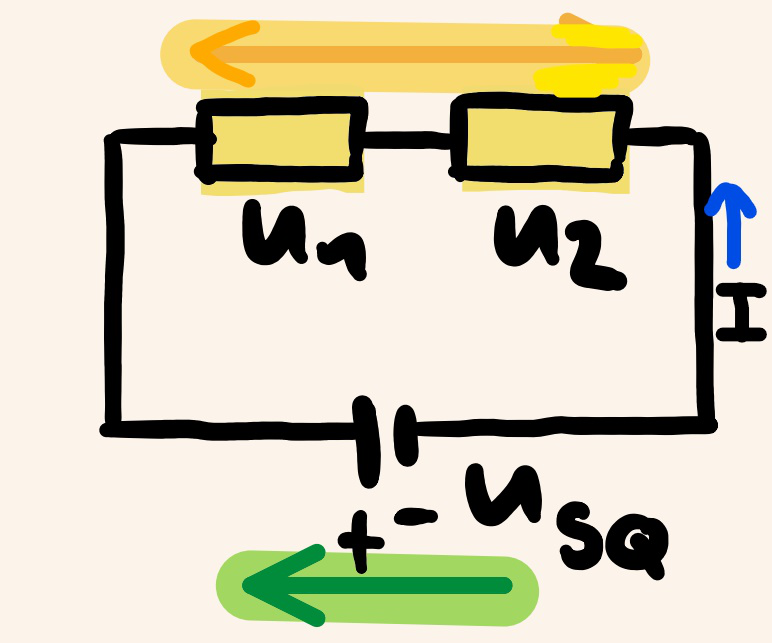 U1 U2
I
+ - USQ